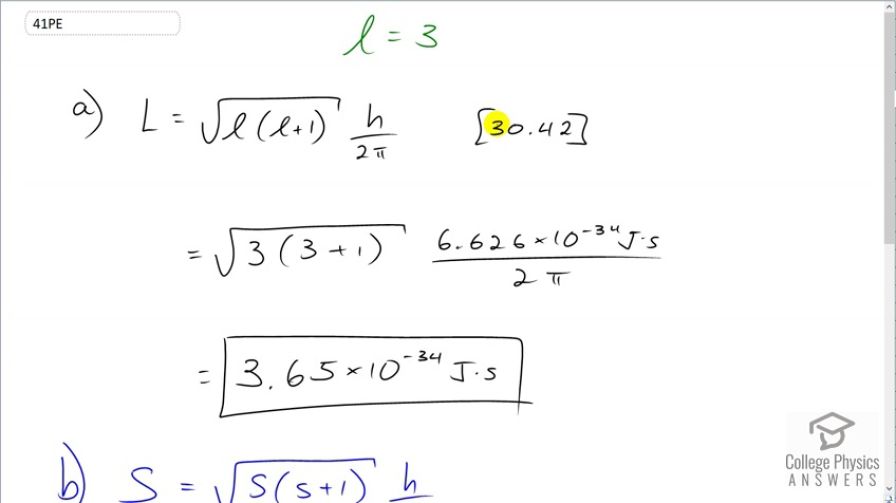 41PE
l = 3
a) L = √l(l+1) h/2π [30.42]
= √3(3+1) 6.626×10⁻³⁴ J·s/2π
= 3.65×10⁻³⁴ J·s
b) S = √s(s+1) h
College Physics
ANSWERS